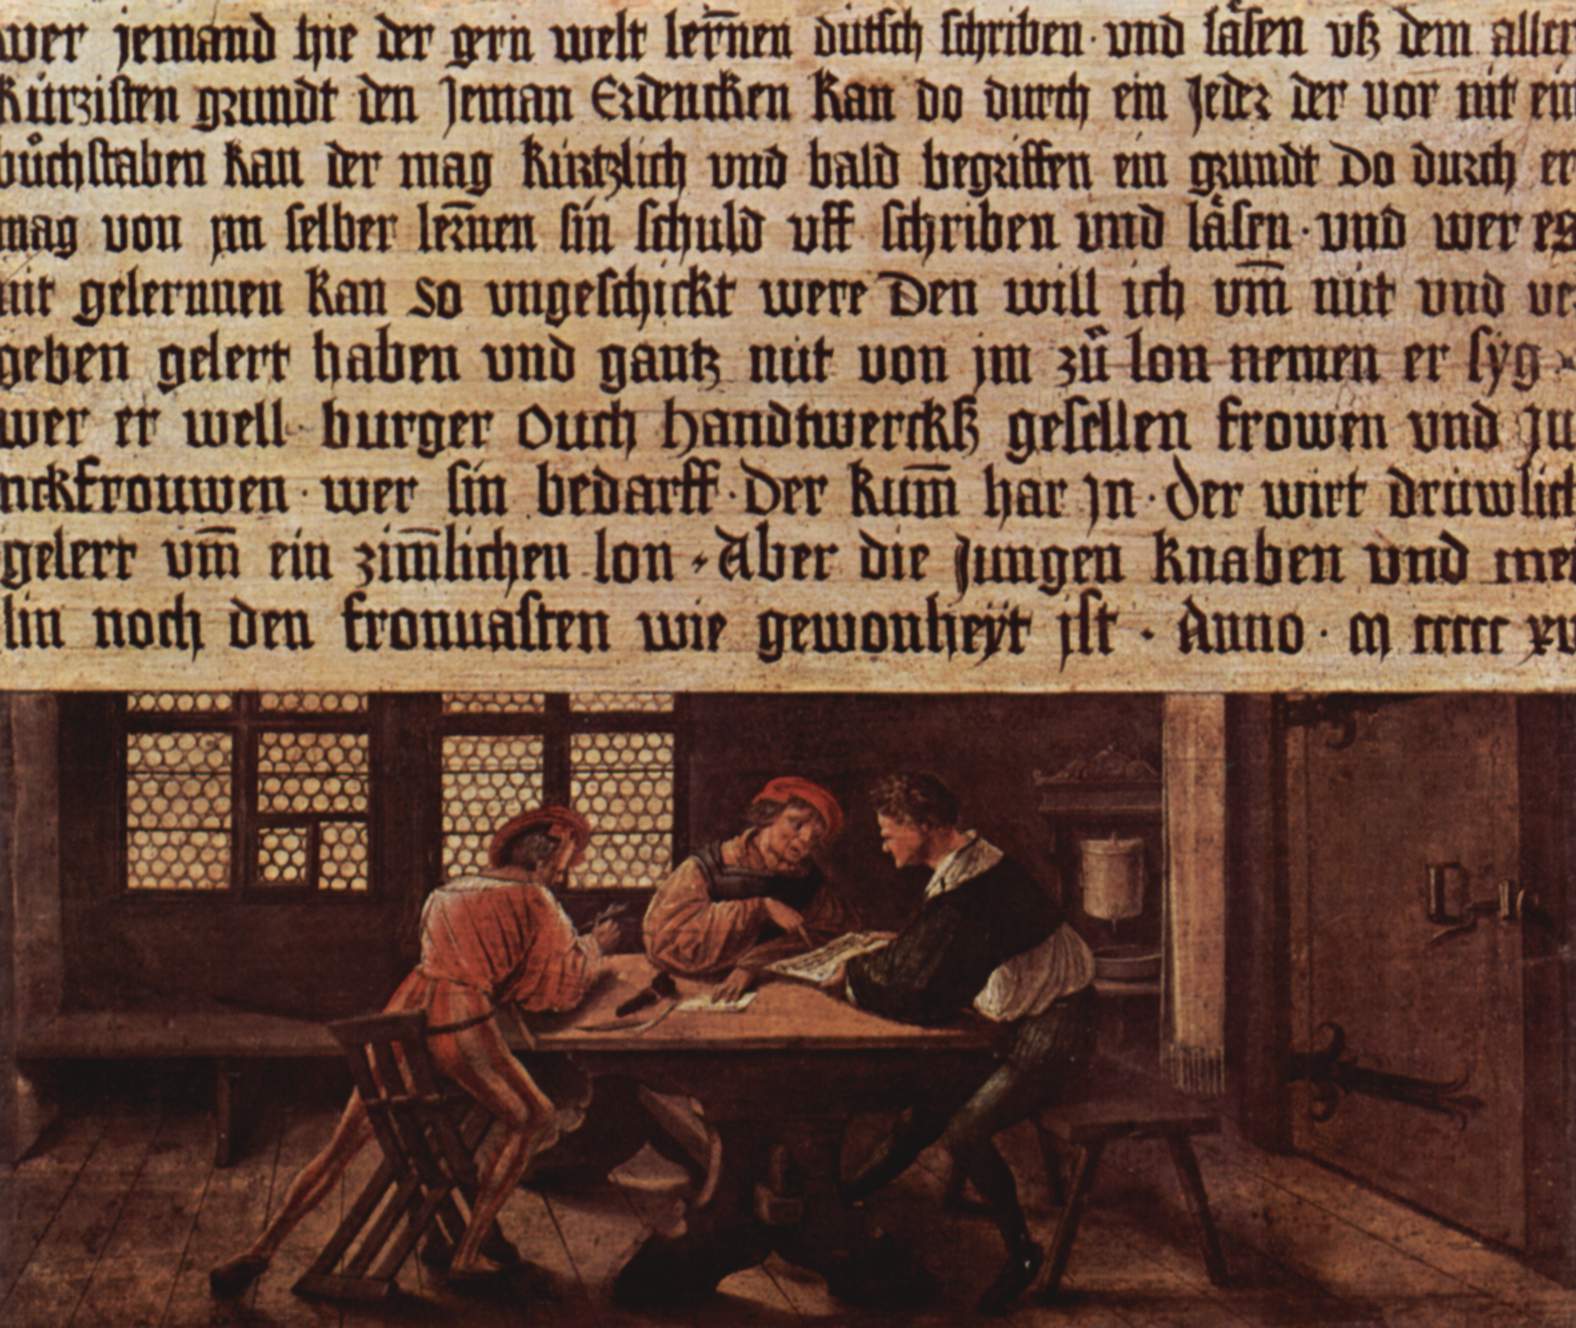 wer jemand hie der gern welt lern̄en dütsch schriben · vnd läsen vß dem aller
kürzisten grundt den Jeman Erdencken kan do durch ein Jeder der vor nit ein
bůchstaben kan der mag kürtzlich vnd bald begriffen ein grundt Do durch er
mag von jm selber lern̄en sin schuld vff schriben vnd läsen · vnd wer es
nit gelernnen kan so vngeschickt were Den will ich vm̄ nüt vnd ver
geben gelert haben vnd gantz nüt von jm zů lon nemen er syg
wer er well · burger Ouch handtwerckß gesellen frowen vnd Ju
nckfrouwen · wer sin bedarff · Der kum̄ har jn · der wirt drüwlich
gelert vm̄ ein zim̄lichen lon · Aber die Jungen knaben vnd mei
lin noch den fronuasten wie gewonheÿt jst · Anno · m ccccc xv